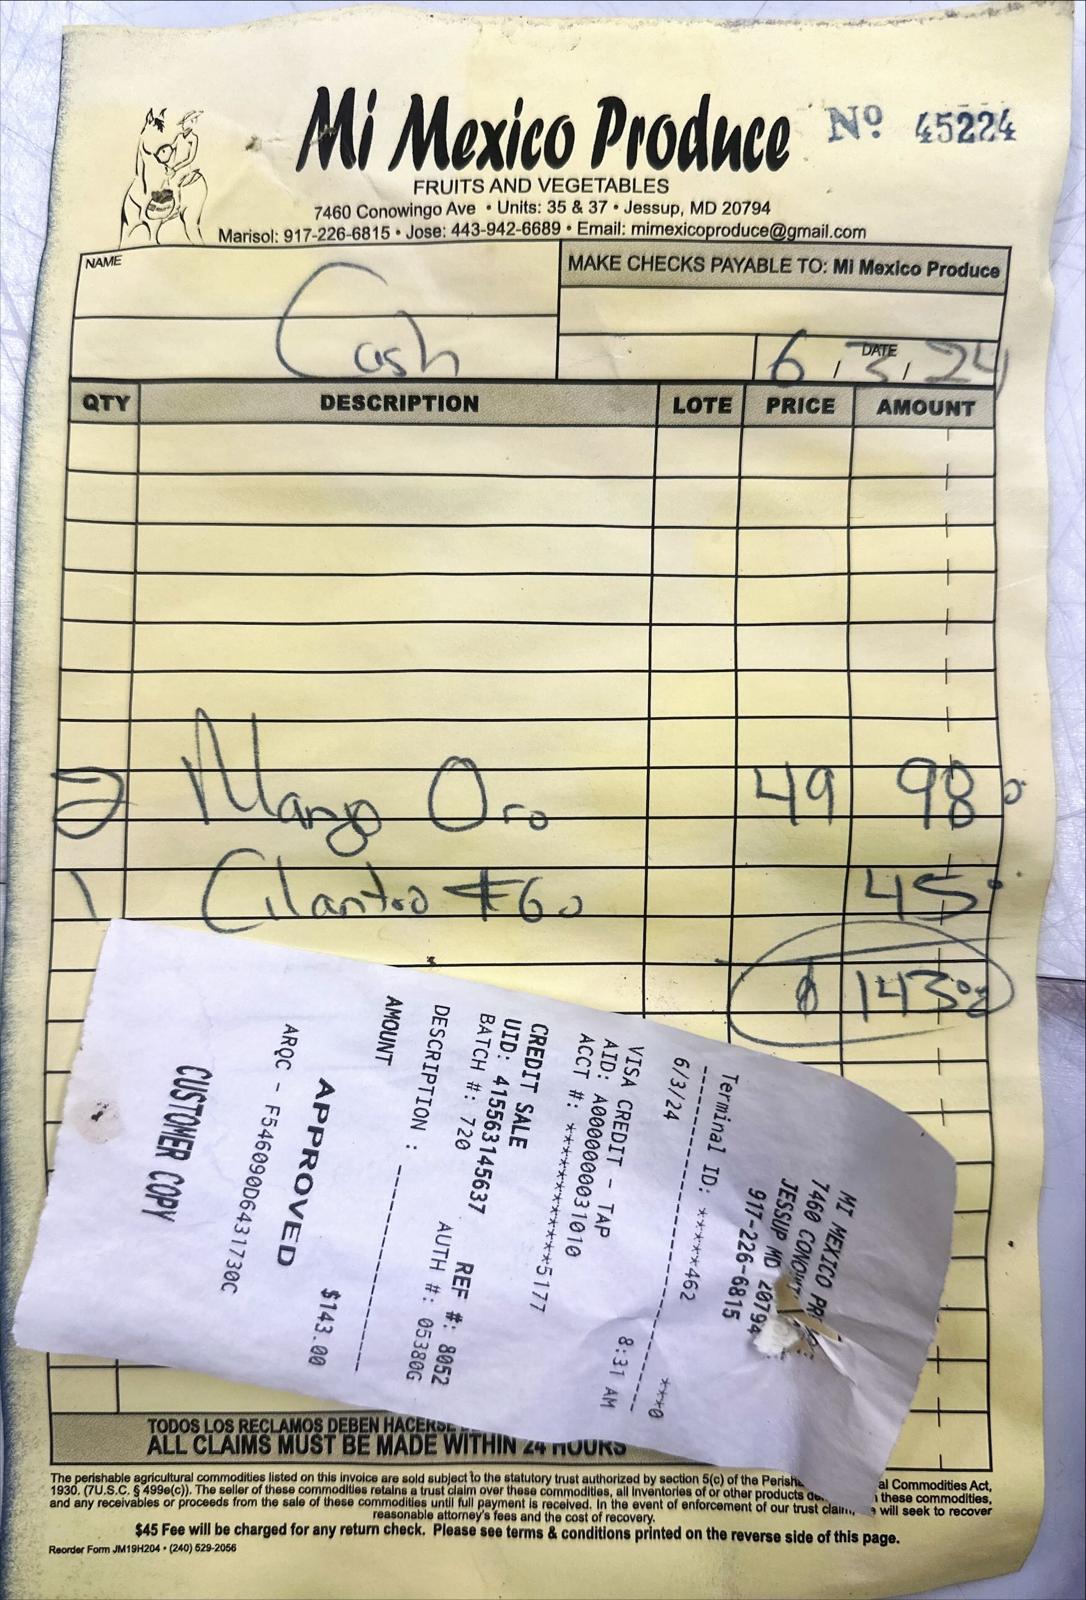 Mi Mexico Produce
Nº 45224
FRUITS AND VEGETABLES
7460 Conowingo Ave • Units: 35 & 37 • Jessup, MD 20794
Marisol: 917-226-6815 • Jose: 443-942-6689 • Email: mimexicoproduce@gmail.com
NAME
MAKE CHECKS PAYABLE TO: Mi Mexico Produce
Cash
DATE
6 / 3 / 24
QTY DESCRIPTION LOTE PRICE AMOUNT
2 Mango Oro 49 98 0
1 Cilantro #60 45 0
$ 143 00
MI MEXICO
7460
JESSUP MD 20794
917-226-6815
Terminal ID: ****462 ***0
6/3/24 8:31 AM
VISA CREDIT - TAP
AID: A0000000031010
ACCT #: ************5177
CREDIT SALE
UID: 415563145637 REF #: 8052
BATCH #: 720 AUTH #: 05380G
DESCRIPTION :
AMOUNT $143.00
APPROVED
ARQC - F546090D6431730C
CUSTOMER COPY
TODOS LOS RECLAMOS DEBEN HACERSE
ALL CLAIMS MUST BE MADE WITHIN 24 HOURS
The perishable agricultural commodities listed on this invoice are sold subject to the statutory trust authorized by section 5(c) of the al Commodities Act,
1930. (7U.S.C. § 499e(c)). The seller of these commodities retains a trust claim over these commodities, all Inventories of or other products these commodities,
and any receivables or proceeds from the sale of these commodities until full payment is received. In the event of enforcement of our trust claim, will seek to recover
reasonable attorney's fees and the cost of recovery.
$45 Fee will be charged for any return check. Please see terms & conditions printed on the reverse side of this page.
Reorder Form JM19H204 • (240) 529-2056